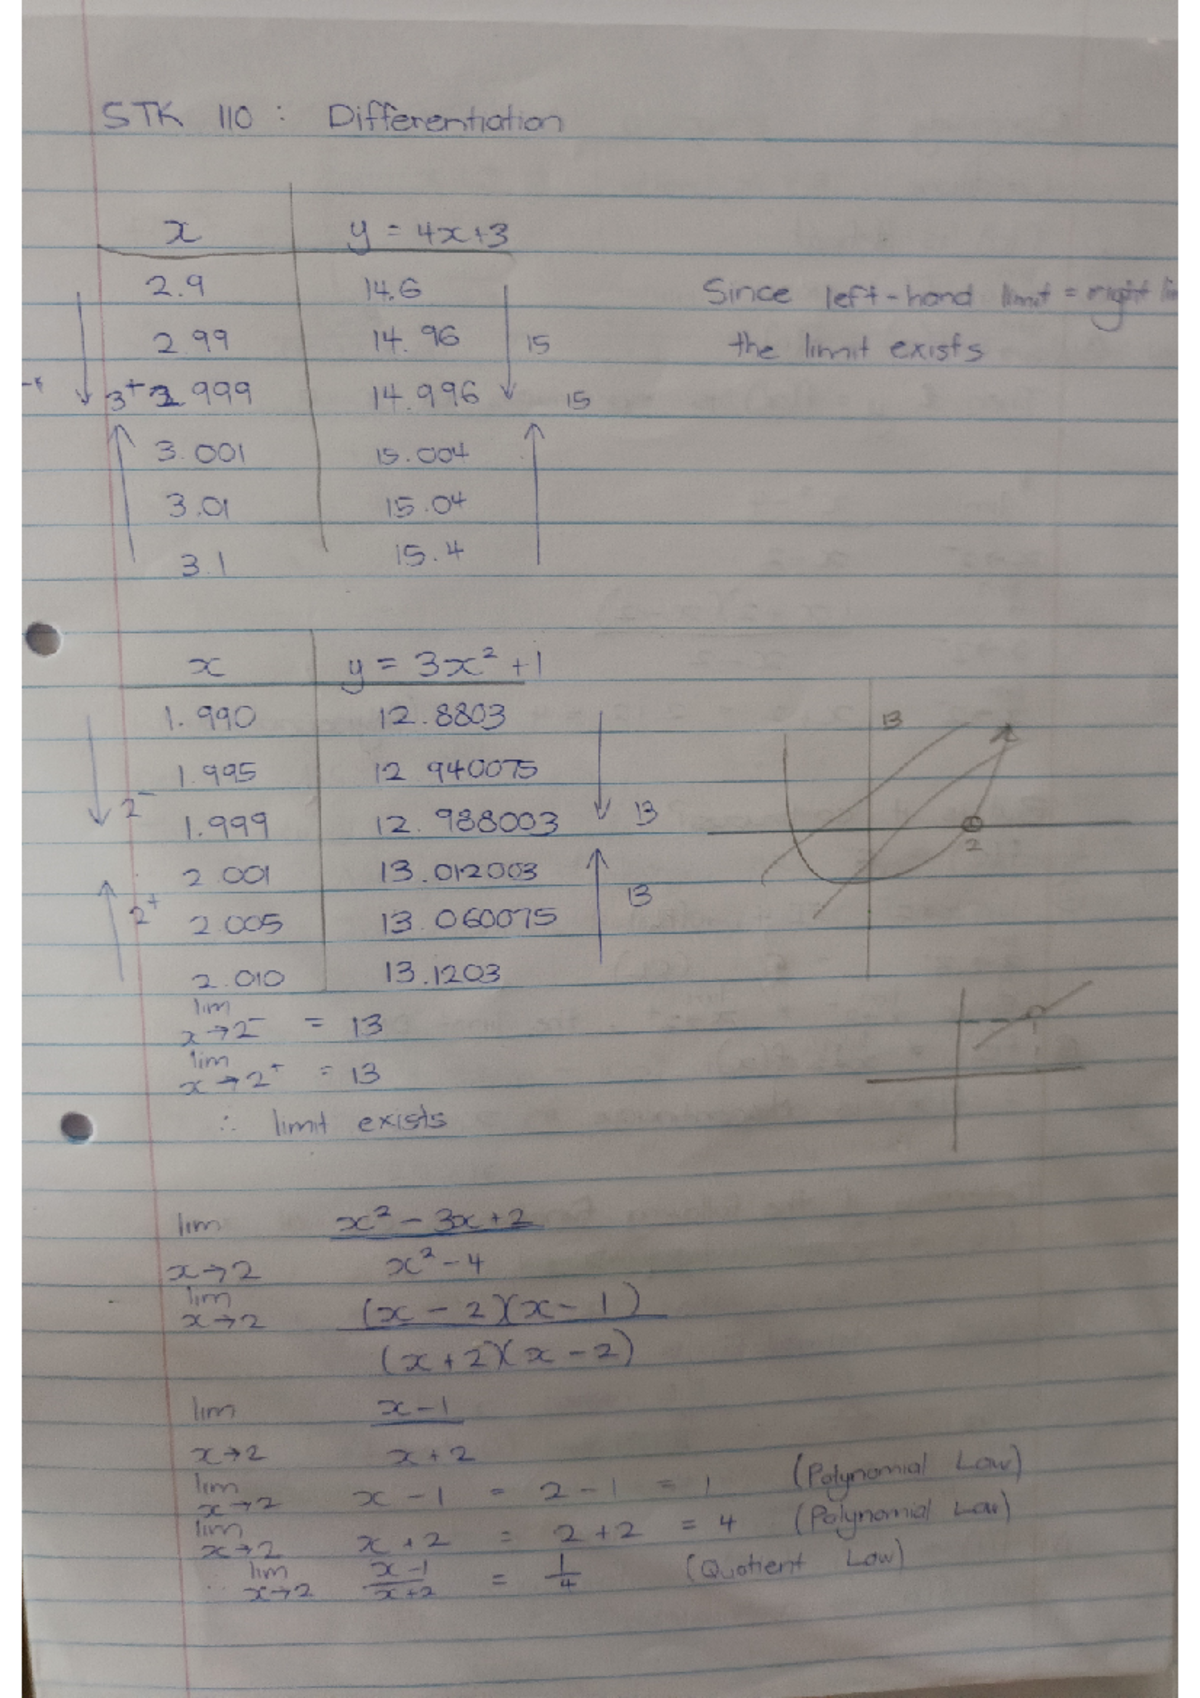 STK 110 : Differentiation
x y = 4x+3
2.9 14.6 Since left-hand limit = right
2.99 14.96 15 the limit exists
3+ 2.999 14.996 15
3.001 15.004
3.01 15.04
3.1 15.4
x y = 3x² + 1
1.990 12.8803 13
1.995 12 940075
2⁻ 1.999 12.988003 13
2
2 001 13.012003
2⁺ 2 005 13.060075 13
2.010 13.1203
lim
x→2⁻ = 13
lim
x→2⁺ = 13
∴ limit exists
lim x² - 3x + 2
x→2 x² - 4
lim (x - 2)(x - 1)
x→2 (x+2)(x-2)
lim x-1
x→2 x+2
lim x - 1 = 2 - 1 = 1 (Polynomial Law)
x→2
lim x + 2 = 2 + 2 = 4 (Polynomial Law)
x→2
∴ lim x-1 = 1 (Quotient Law)
x→2 x+2 4